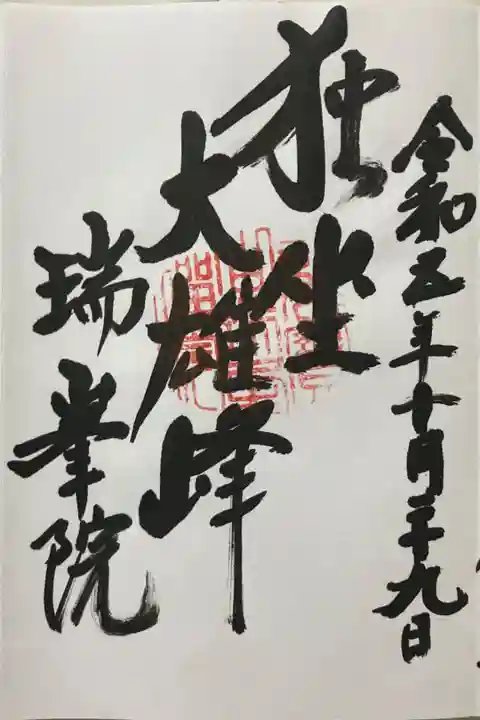 令和五年十月二十九日
独坐
大雄峰
瑞峯院